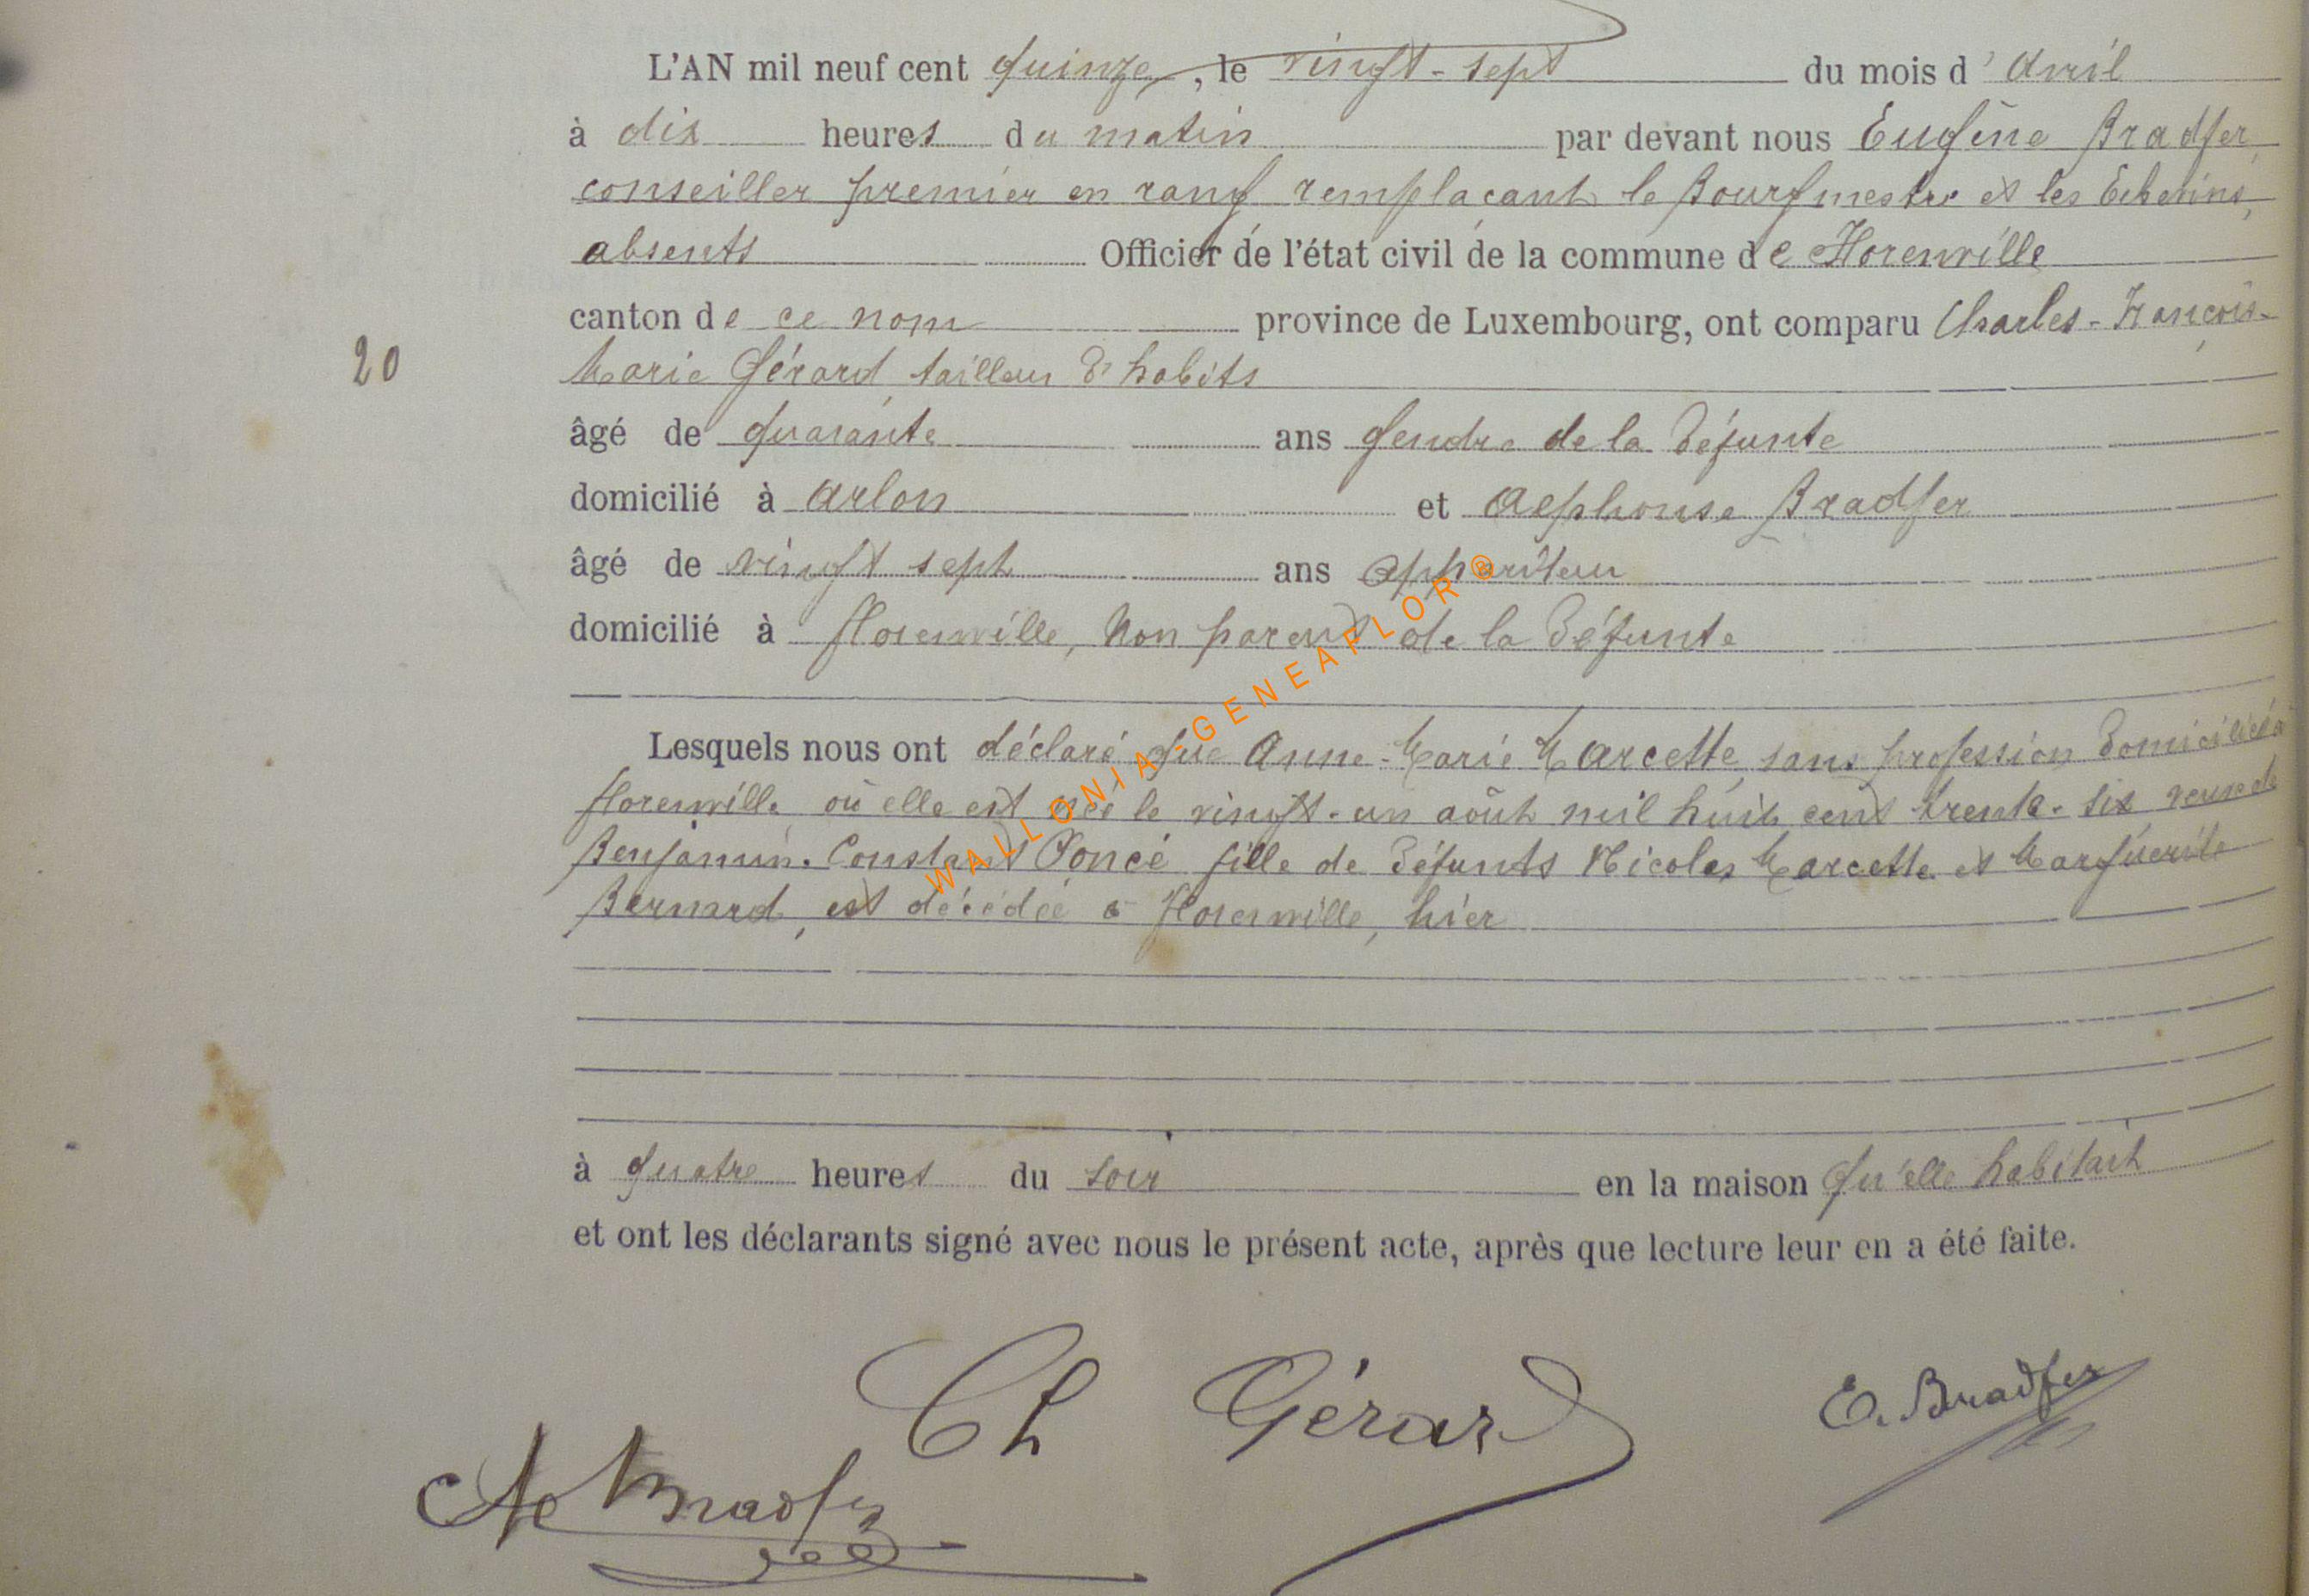 L'AN mil neuf cent quinze, le vingt-sept du mois d'Avril
à dix heures du matin par devant nous Eugène Bradfer,
conseiller premier en rang remplaçant le Bourgmestre et les Echevins,
absents Officier de l'état civil de la commune de Florenville
canton de ce nom province de Luxembourg, ont comparu Charles-François-
20 Marie Gérard tailleur d'habits
âgé de quarante ans gendre de la défunte
domicilié à Arlon et Alphonse Bradfer
âgé de vingt sept ans appariteur
domicilié à Florenville, non parent de la défunte
Lesquels nous ont déclaré que Anne-Marie Marcette, sans profession domiciliée à
Florenville, où elle est née le vingt-un août mil huit cent trente-six veuve de
Benjamin-Constant Poncé fille de défunts Nicolas Marcette et Marguerite
Bernard, est décédée à Florenville, hier
à quatre heures du soir en la maison qu'elle habitait
et ont les déclarants signé avec nous le présent acte, après que lecture leur en a été faite.
Ch Gérard E. Bradfer
Al Bradfer
WALLONIA-GENEAFLOR®